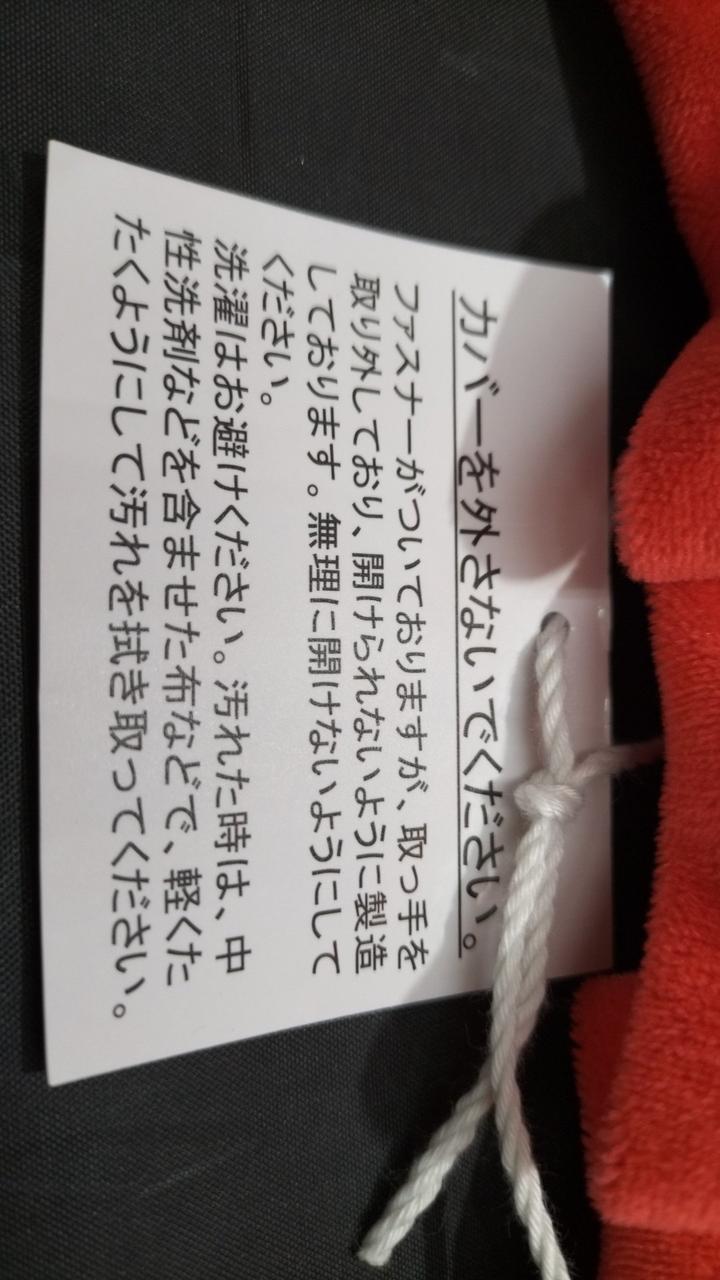 カバーを外さないでください。
ファスナーがついておりますが、取っ手を
取り外しており、開けられないように製造
しております。無理に開けないようにして
ください。
洗濯はお避けください。汚れた時は、中
性洗剤などを含ませた布などで、軽くた
たくようにして汚れを拭き取ってください。